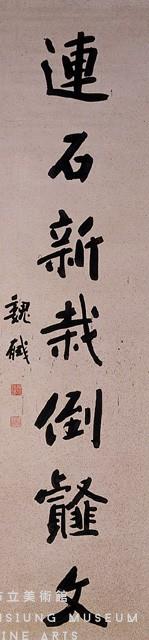 連石新栽倒韰文
魏戫
市立美術館
HSIUNG MUSEUM
INE ARTS